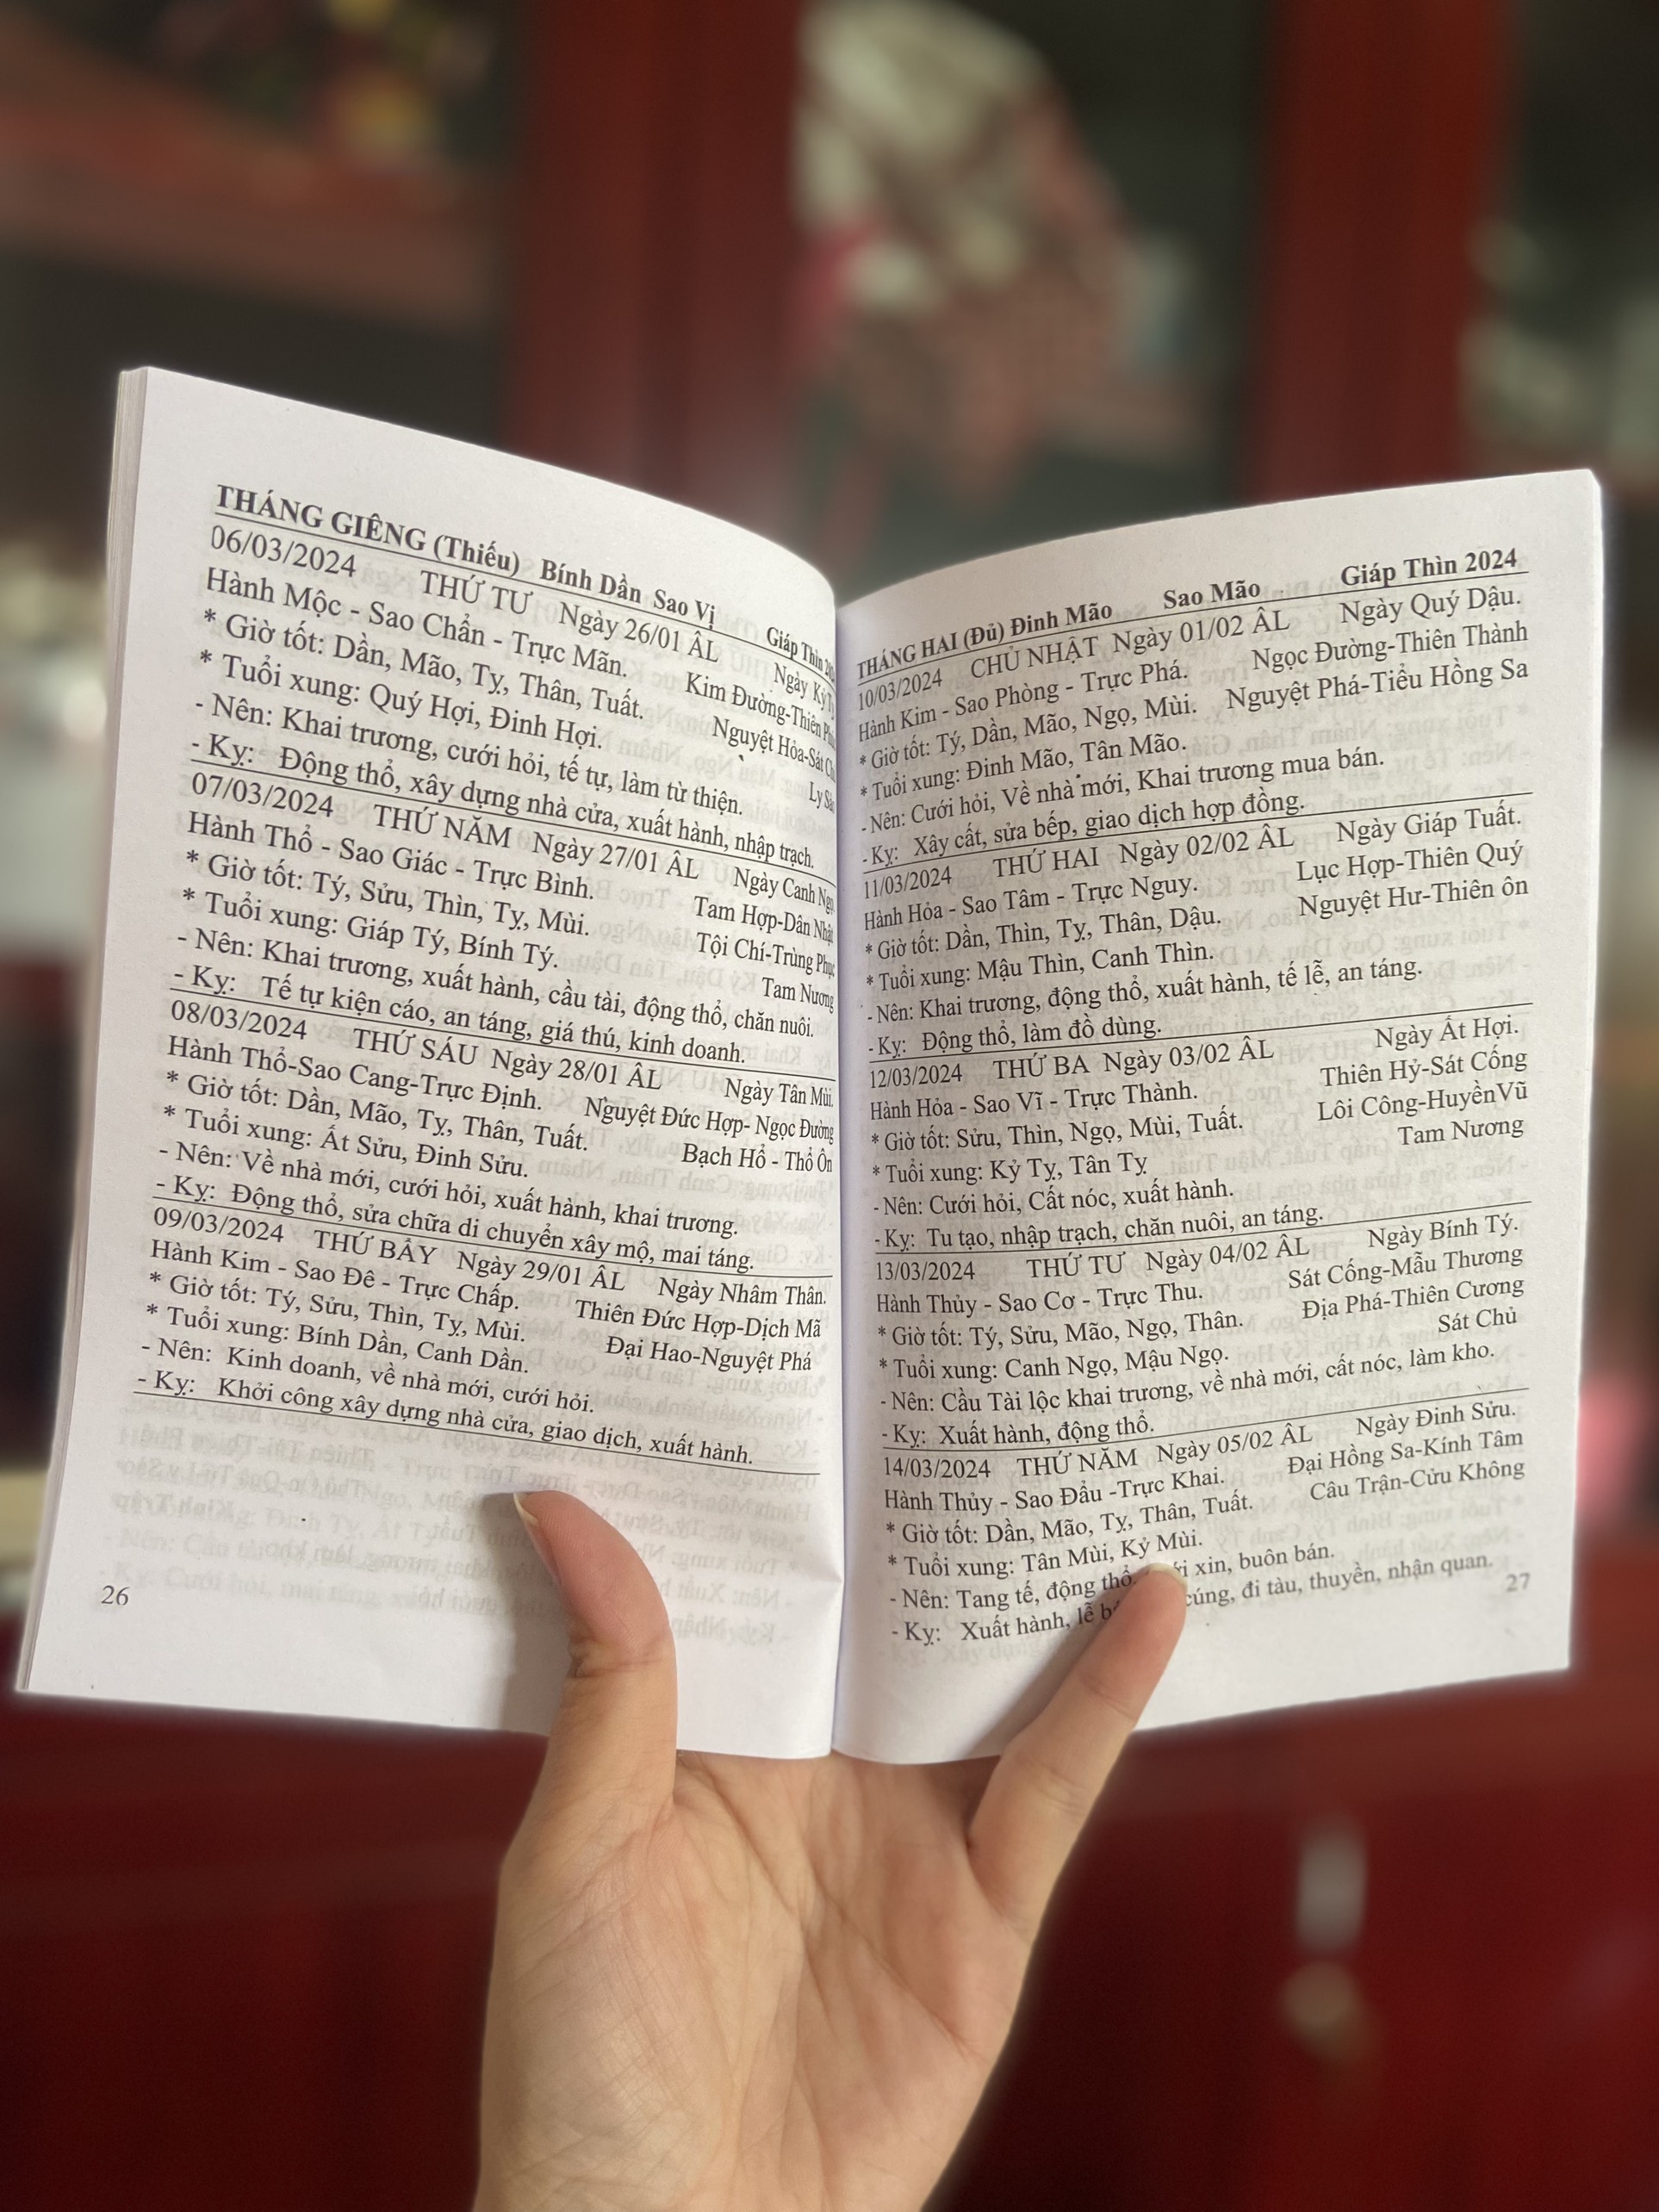 THÁNG GIÊNG (Thiếu) Bính Dần Sao Vị Giáp Thìn
06/03/2024 THỨ TƯ Ngày 26/01 ÂL Ngày Kỷ
Hành Mộc - Sao Chẩn - Trực Mãn. Kim Đường-Thiên
* Giờ tốt: Dần, Mão, Tỵ, Thân, Tuất. Nguyệt Hỏa-Sát
* Tuổi xung: Quý Hợi, Đinh Hợi. Ly
- Nên: Khai trương, cưới hỏi, tế tự, làm từ thiện.
- Kỵ: Động thổ, xây dựng nhà cửa, xuất hành, nhập trạch.
07/03/2024 THỨ NĂM Ngày 27/01 ÂL Ngày Canh Ngọ
Hành Thổ - Sao Giác - Trực Bình. Tam Hợp-Dân Nhật
* Giờ tốt: Tý, Sửu, Thìn, Tỵ, Mùi. Tội Chí-Trùng Phục
* Tuổi xung: Giáp Tý, Bính Tý. Tam Nương
- Nên: Khai trương, xuất hành, cầu tài, động thổ, chăn nuôi.
- Kỵ: Tế tự kiện cáo, an táng, giá thú, kinh doanh.
08/03/2024 THỨ SÁU Ngày 28/01 ÂL Ngày Tân Mùi.
Hành Thổ-Sao Cang-Trực Định. Nguyệt Đức Hợp- Ngọc Đường
* Giờ tốt: Dần, Mão, Tỵ, Thân, Tuất. Bạch Hổ - Thổ Ôn
* Tuổi xung: Ất Sửu, Đinh Sửu.
- Nên: Về nhà mới, cưới hỏi, xuất hành, khai trương.
- Kỵ: Động thổ, sửa chữa di chuyển xây mộ, mai táng.
09/03/2024 THỨ BẢY Ngày 29/01 ÂL Ngày Nhâm Thân.
Hành Kim - Sao Đê - Trực Chấp. Thiên Đức Hợp-Dịch Mã
* Giờ tốt: Tý, Sửu, Thìn, Tỵ, Mùi. Đại Hao-Nguyệt Phá
* Tuổi xung: Bính Dần, Canh Dần.
- Nên: Kinh doanh, về nhà mới, cưới hỏi.
- Kỵ: Khởi công xây dựng nhà cửa, giao dịch, xuất hành.
26
THÁNG HAI (Đủ) Đinh Mão Sao Mão Giáp Thìn 2024
10/03/2024 CHỦ NHẬT Ngày 01/02 ÂL Ngày Quý Dậu.
Hành Kim - Sao Phòng - Trực Phá. Ngọc Đường-Thiên Thành
* Giờ tốt: Tý, Dần, Mão, Ngọ, Mùi. Nguyệt Phá-Tiểu Hồng Sa
* Tuổi xung: Đinh Mão, Tân Mão.
- Nên: Cưới hỏi, Về nhà mới, Khai trương mua bán.
- Kỵ: Xây cất, sửa bếp, giao dịch hợp đồng.
11/03/2024 THỨ HAI Ngày 02/02 ÂL Ngày Giáp Tuất.
Hành Hỏa - Sao Tâm - Trực Nguy. Lục Hợp-Thiên Quý
* Giờ tốt: Dần, Thìn, Tỵ, Thân, Dậu. Nguyệt Hư-Thiên ôn
* Tuổi xung: Mậu Thìn, Canh Thìn.
- Nên: Khai trương, động thổ, xuất hành, tế lễ, an táng.
- Kỵ: Động thổ, làm đồ dùng.
12/03/2024 THỨ BA Ngày 03/02 ÂL Ngày Ất Hợi.
Hành Hỏa - Sao Vĩ - Trực Thành. Thiên Hỷ-Sát Cống
* Giờ tốt: Sửu, Thìn, Ngọ, Mùi, Tuất. Lôi Công-HuyềnVũ
* Tuổi xung: Kỷ Tỵ, Tân Tỵ Tam Nương
- Nên: Cưới hỏi, Cất nóc, xuất hành.
- Kỵ: Tu tạo, nhập trạch, chăn nuôi, an táng.
13/03/2024 THỨ TƯ Ngày 04/02 ÂL Ngày Bính Tý.
Hành Thủy - Sao Cơ - Trực Thu. Sát Cống-Mẫu Thương
* Giờ tốt: Tý, Sửu, Mão, Ngọ, Thân. Địa Phá-Thiên Cương
* Tuổi xung: Canh Ngọ, Mậu Ngọ. Sát Chủ
- Nên: Cầu Tài lộc khai trương, về nhà mới, cất nóc, làm kho.
- Kỵ: Xuất hành, động thổ.
14/03/2024 THỨ NĂM Ngày 05/02 ÂL Ngày Đinh Sửu.
Hành Thủy - Sao Đẩu -Trực Khai. Đại Hồng Sa-Kính Tâm
* Giờ tốt: Dần, Mão, Tỵ, Thân, Tuất. Câu Trận-Cửu Không
* Tuổi xung: Tân Mùi, Kỷ Mùi.
- Nên: Tang tế, động thổ, xin, buôn bán.
- Kỵ: Xuất hành, lễ cúng, đi tàu, thuyền, nhận quan.
27